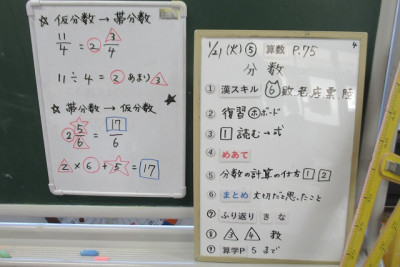 ☆ 仮分数 → 帯分数
11/4 = ② 3/4
11 ÷ 4 = ② あまり 3
☆ 帯分数 → 仮分数
2 5/6 = 17/6
2 × 6 + 5 = 17
1/21 (火) ⑤ 算数 P.75
分数
① 漢スキル 6 敗老店票陸
② 復習 ホ ボード
③ 1 読む → 式
④ めあて
⑤ 分数の計算の仕方 1 2
⑥ まとめ 大切だと思ったこと
⑦ ふり返り きな
⑧ 3 4 教
⑨ 算学P 5 まで